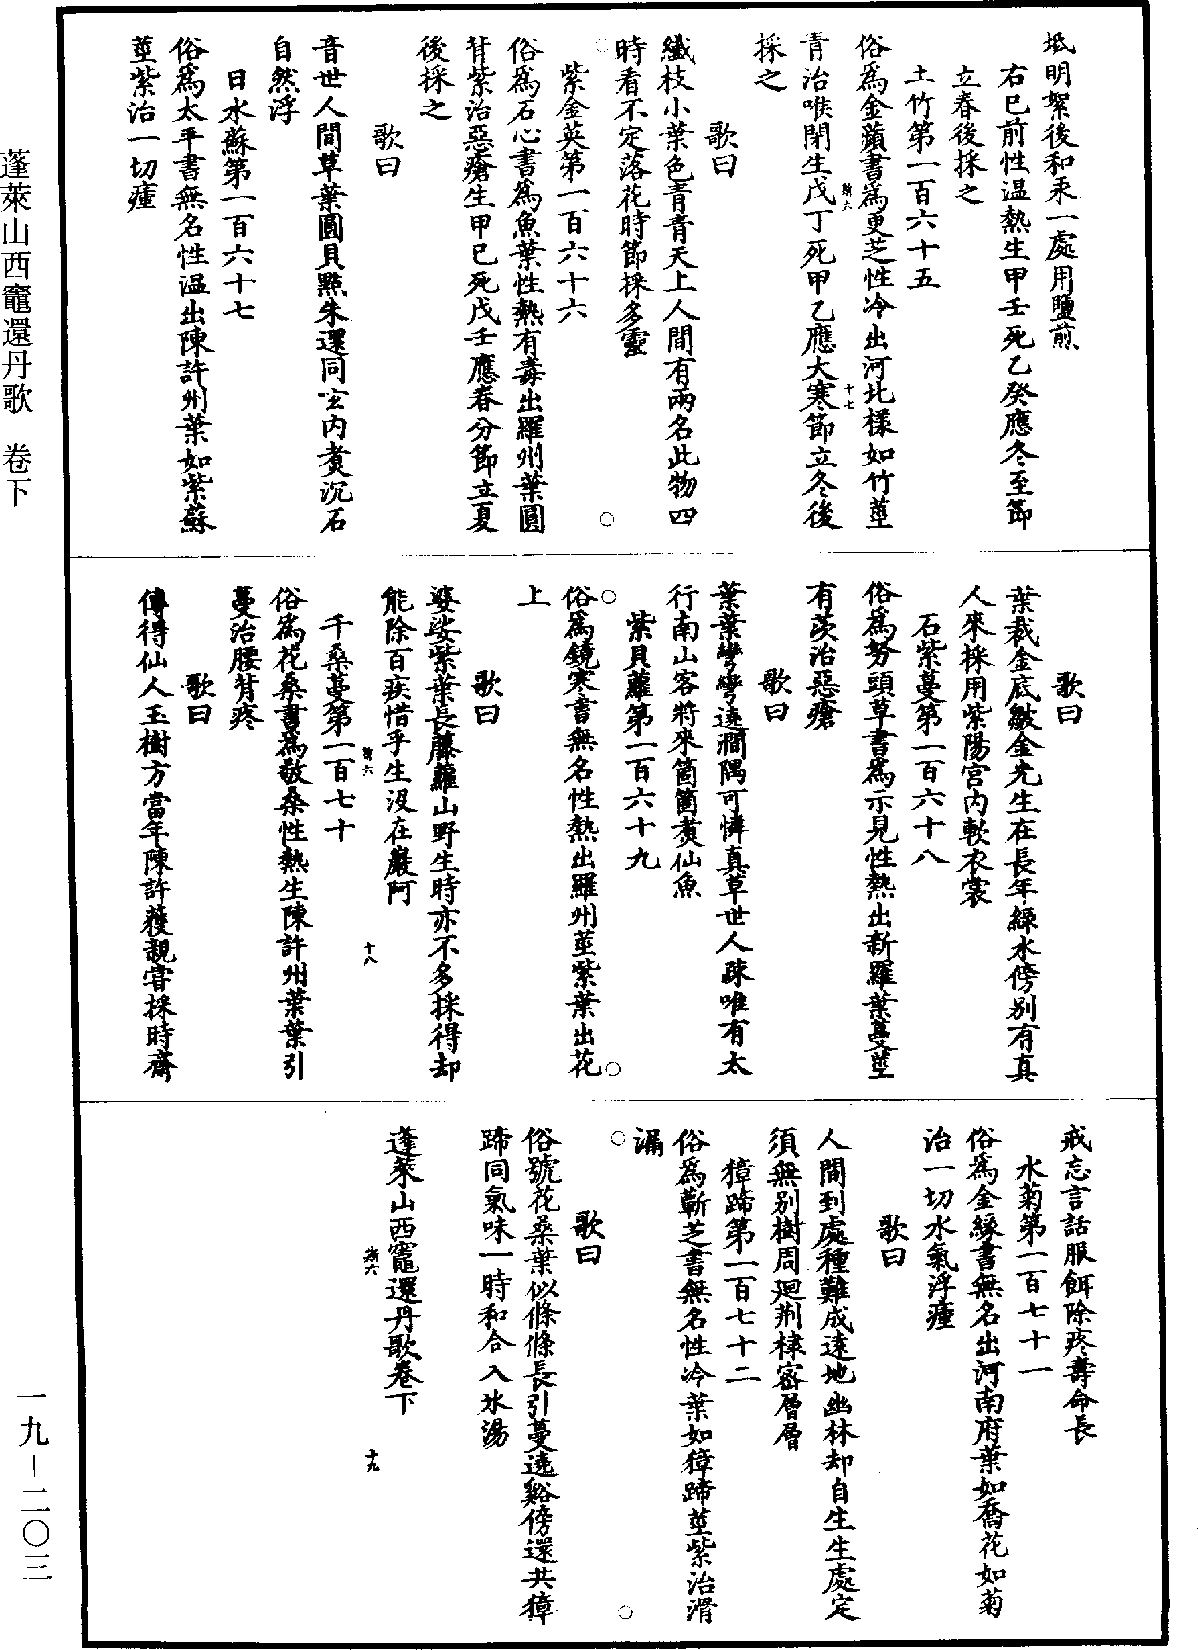 坻明絮後和汞一處用鹽煎
右巳前性温熱生甲壬死乙癸應冬至節
立春後採之
土竹第一百六十五
俗爲金蘋書爲更芝性冷出河北樣如竹莖
青治喉閉生戊丁死甲乙應大寒節立冬後
採之
歌曰
纖枝小葉色青青天上人間有兩名此物四
時看不定落花時節採多靈
紫金英第一百六十六
俗爲石心書爲魚葉性熱有毒出羅州葉圓
背紫治惡瘡生甲巳死戊壬應春分節立夏
後採之
歌曰
音世人間草葉圓貝點朱還同玄内煑沉石
自然浮
日水蘇第一百六十七
俗爲太平書無名性温出陳許州葉如紫蘇
莖紫治一切瘇
歌曰
葉裁金底皺金先生在長年緑水傍别有真
人來採用紫陽宫内軟衣裳
石紫蔓第一百六十八
俗爲努頭草書爲示見性熱出新羅葉蔓莖
有茨治惡瘡
歌曰
葉葉彎彎遶澗隅可憐真草世人疎唯有太
行南山客將來箇箇煑仙魚
紫貝蘿第一百六十九
俗爲鏡寒書無名性熱出羅州莖紫葉出花
上
歌曰
婆娑紫葉長藤蘿山野生時亦不多採得却
能除百疾惜乎生没在巖阿
千桑蔓第一百七十
俗爲花桑書爲敬桑性熱生陳許州葉葉引
蔓治腰背疼
歌曰
傳得仙人玉樹方當年陳許獲親嘗採時齋
戒忘言話服餌除疼壽命長
水菊第一百七十一
俗爲金緣書無名出河南府葉如喬花如菊
治一切水氣浮瘇
歌曰
人間到處種難成遠地幽林却自生生處定
須無别樹周廻荆棣密層層
獐蹄第一百七十二
俗爲蘄芝書無名性冷葉如獐蹄莖紫治滑
漏
歌曰
俗號花桑葉似條條長引蔓遶谿傍還共獐
蹄同氣味一時和合入氷湯
蓬萊山西竈還丹歌卷下
十七
十八
十九
蓬萊山西竈還丹歌 卷下
一九－二〇三